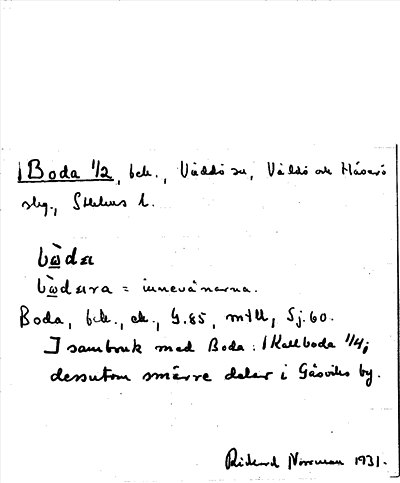 Boda 1/2, bek., Väddö sn, Väddö och Häverö
skg., Sthlms l.
bὼdεɪ
bὼdεɪra = innevånarna.
Boda, bek., ek., G.85, mtll, Sj.60.
I sambruk med Boda: Kallboda 1/4;
dessutom smärre delar i Gåsviks by.
Rickard Norrman 1931.